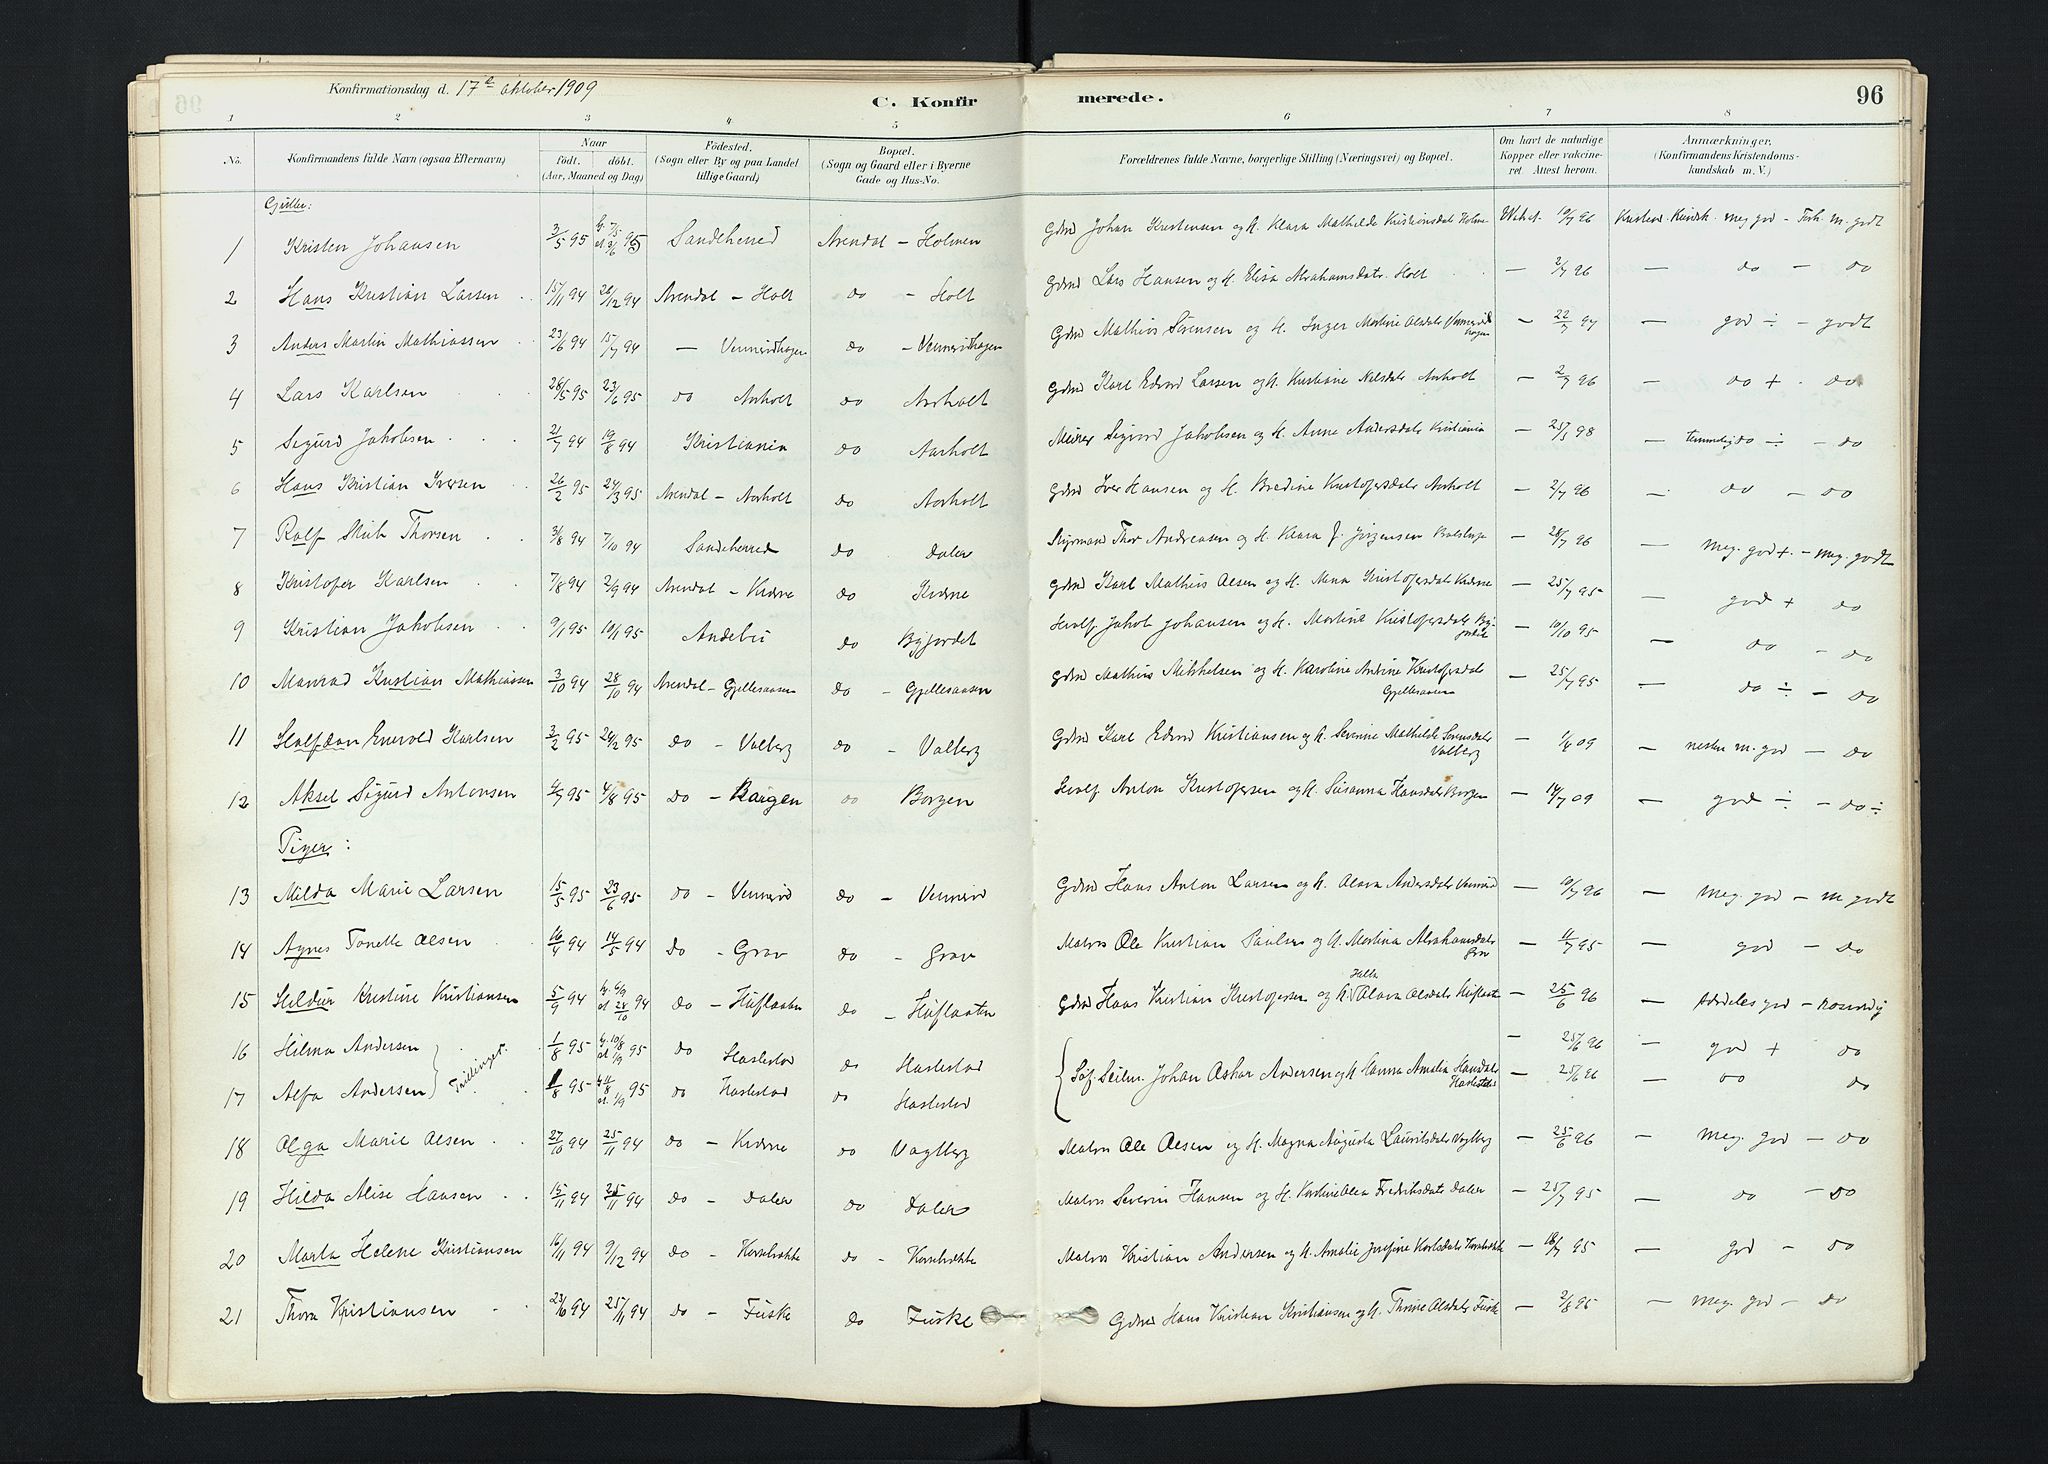 Konfirmationsdag d. 17de Oktober 1909
C. Konfirmerede.
96
1 2 3 4 5 6 7 8
No.
Konfirmandens fulde Navn (ogsaa Efternavn)
Naar
födt. döbt.
(Aar, Maaned og Dag)
Födested.
(Sogn eller By og paa Landet
tillige Gaard)
Bopæl.
(Sogn og Gaard eller i Byerne
Gade og Hus-No.
Forældrenes fulde Navne, borgerlige Stilling (Næringsvei) og Bopæl.
Om havt de naturlige
Kopper eller vakcine-
ret. Attest herom.
Anmærkninger.
(Konfirmandens Kristendoms-
kundskab m. V.)
Gutter:
1 Kristen Johansen 3/5 95 Sandeherred Arendal – Holmen Gdmd Johan Kristensen og H. Klara Mathilde Kristiansdatr Holmen 10/7 96 Kristend. Kundsk. meg. god – Forh. m. godt
2 Hans Kristian Larsen 15/11 94 26/12 94 Arendal – Holt do – Holt Gdmd Lars Hansen og H. Elisa Abrahamsdatr. Holt – 2/7 96 – do – do
3 Anders Martin Mathiassen 23/6 94 15/7 94 – Vennerödhagen do – Vennerödhagen Gdmd Mathias Sörensen og H. Inger Martine Olsdatr Venneröd hagen – 22/7 97 – god ÷ – godt
4 Lars Karlsen 28/5 95 23/6 95 do Aarholt do Aarholt Gdmd Karl Edvard Larsen og H. Kristine Nilsdatr Aarholt – 2/7 96 – do + – do
5 Sigurd Jakobsen 21/7 94 19/8 94 Kristiania do Aarholt Murer Sigurd Jakobsen og H. Anne Andersdatr Kristiania – 98 – temmelig do ÷ – do
6 Hans Kristian Iversen 26/2 95 24/3 95 Arendal – Aarholt do Aarholt Gdmd Iver Hansen og H. Bredine Kristofersdatr Aarholt – 2/7 96 – do – do
7 Rolf Thorsen 31/8 94 7/10 94 Sandeherred do Dalen Styrmand Thor Andreasen og H. Klara J. Jörgensen – 28/7 96 – meg. god + – meg. godt
8 Kristofer Karlsen 7/8 94 2/9 94 Arendal – Kverne do Kverne Gdmd Karl Mathias Olsen og H. Mina Kristofersdatr Kverne – 25/7 95 – god + do
9 Kristian Jakobsen 9/1 95 10/1 95 Andebu do Byfjordet Selvf Jakob Johansen og H. Martine Kristofersdatr Byfjordet – 10/10 95 – do – do
10 Manrad Kristian Mathiassen 3/10 94 28/10 94 Arendal – Gjellesaasen do – Gjellesaasen Gdmd Mathias Mikkelsen og H. Karoline Andrine Kristofersdatr Gjellesaasen – 25/7 95 – do ÷ – do
11 Halfdan Enevold Karlsen 3/2 95 24/2 95 do – Valberg do – Valberg Gdmd Karl Edvard Kristiansen og H. Severine Mathilde Sörensdatr Valberg – 09 – næsten m. god – do
12 Aksel Sigurd Antonsen 4/7 95 4/8 95 do – Borgen do Borgen Selvf Anton Kristofersen og H. Susanna Hansdatr Borgen – 14/7 09 – god ÷ – do ÷
Piger:
13 Milda Marie Larsen 15/5 95 23/6 95 do – Venneröd do – Venneröd Gdmd Hans Anton Larsen og H. Olava Andersdatr Venneröd – 10/7 96 – meg. god – m godt
14 Agnes Tonette Olsen 16/4 94 14/5 94 do – Grav do – Grav Matros Ole Kristian Paulsen og H. Martina Abrahamsdatr Grav – 11/7 95 – god – do
15 Hildur Kristine Kristiansen 5/9 94 94 do – Huflaaten do – Huflaaten Gdmd Hans Kristian Kristofersen og H. Hella Olava Olsdatr Huflaaten – 25/6 96 – særdeles god – rosverdig
16 Hilma Andersen 1/8 95 hj. 10/8 st. 1/9 95 do Haslestad do Haslestad – 25/6 96 – god + do
Tvillinger.
17 Alfa Andersen 1/8 95 hj. 11/8 st. 1/9 95 do Haslestad do Haslestad Johan Oskar Andersen og H. Hanna Amalia Hansdatr Haslestad – 25/6 96 – do do
18 Olga Marie Olsen 27/10 94 25/11 94 do – Kverne do Vagtberg Matros Ole Olsen og H. Magna Augusta Lauritsdatr Vagtberg – 25/6 96 – meg. god – do
19 Hilda Alise Hansen 15/11 94 25/11 94 do – Dalen do Dalen Matros Severin Hansen og H. Karoline Olea Fredriksdatr Dalen – 25/7 95 – do – do
20 Marta Helene Kristiansen 16/11 94 9/12 94 do – Korsbrække do – Korsbrække Matros Kristian Andersen og H. Amalie Josefine Karlsdatr Korsbrække – 18/7 95 – god – do
21 Thora Kristiansen 23/10 94 25/11 94 do – Fuske do Fuske Gdmd Hans Kristian Kristiansen og H. Thrine Olsdatr Fuske – 2/8 95 – meg. god – do